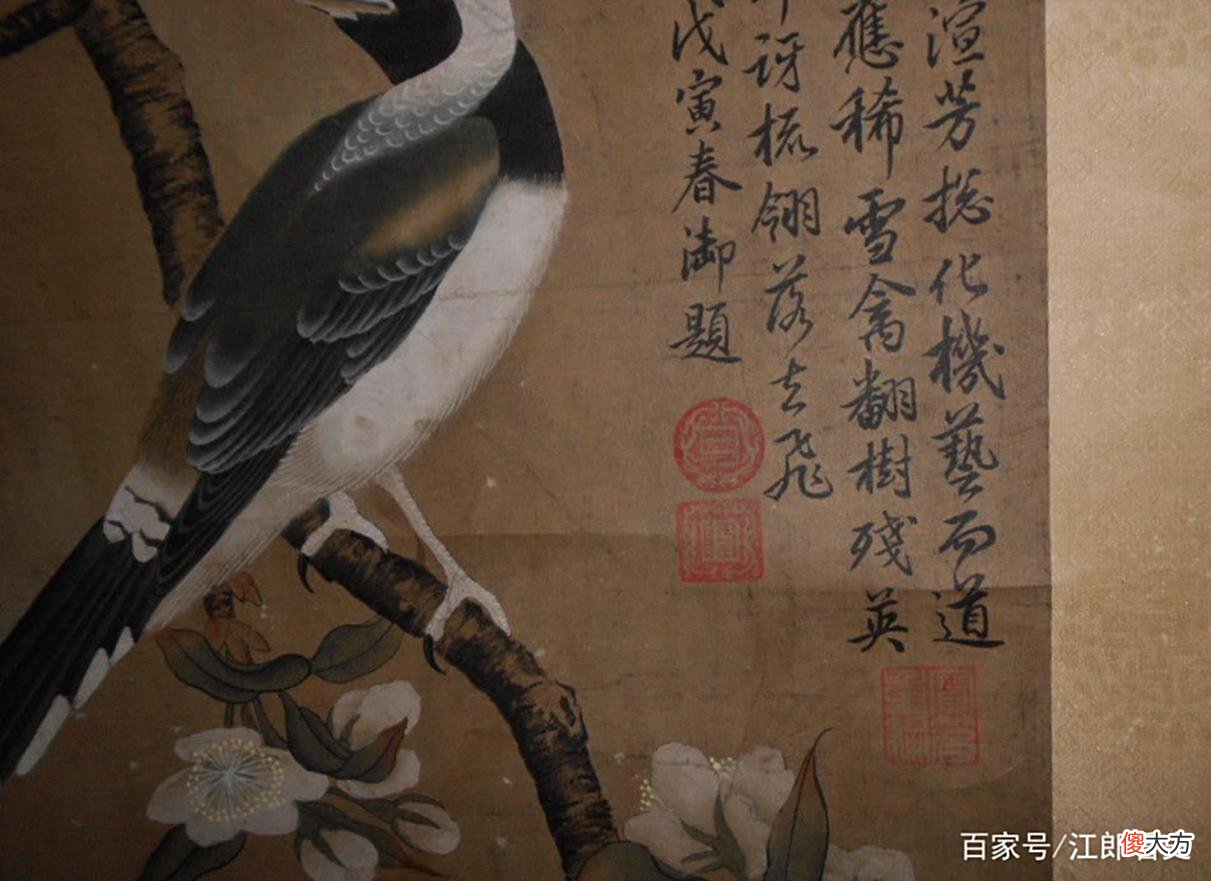 渲芳摠化機藝而道
應稀雪禽翻樹残英
訝梳翎落去飛
戊寅春御題
百家号/江郎
傻大方